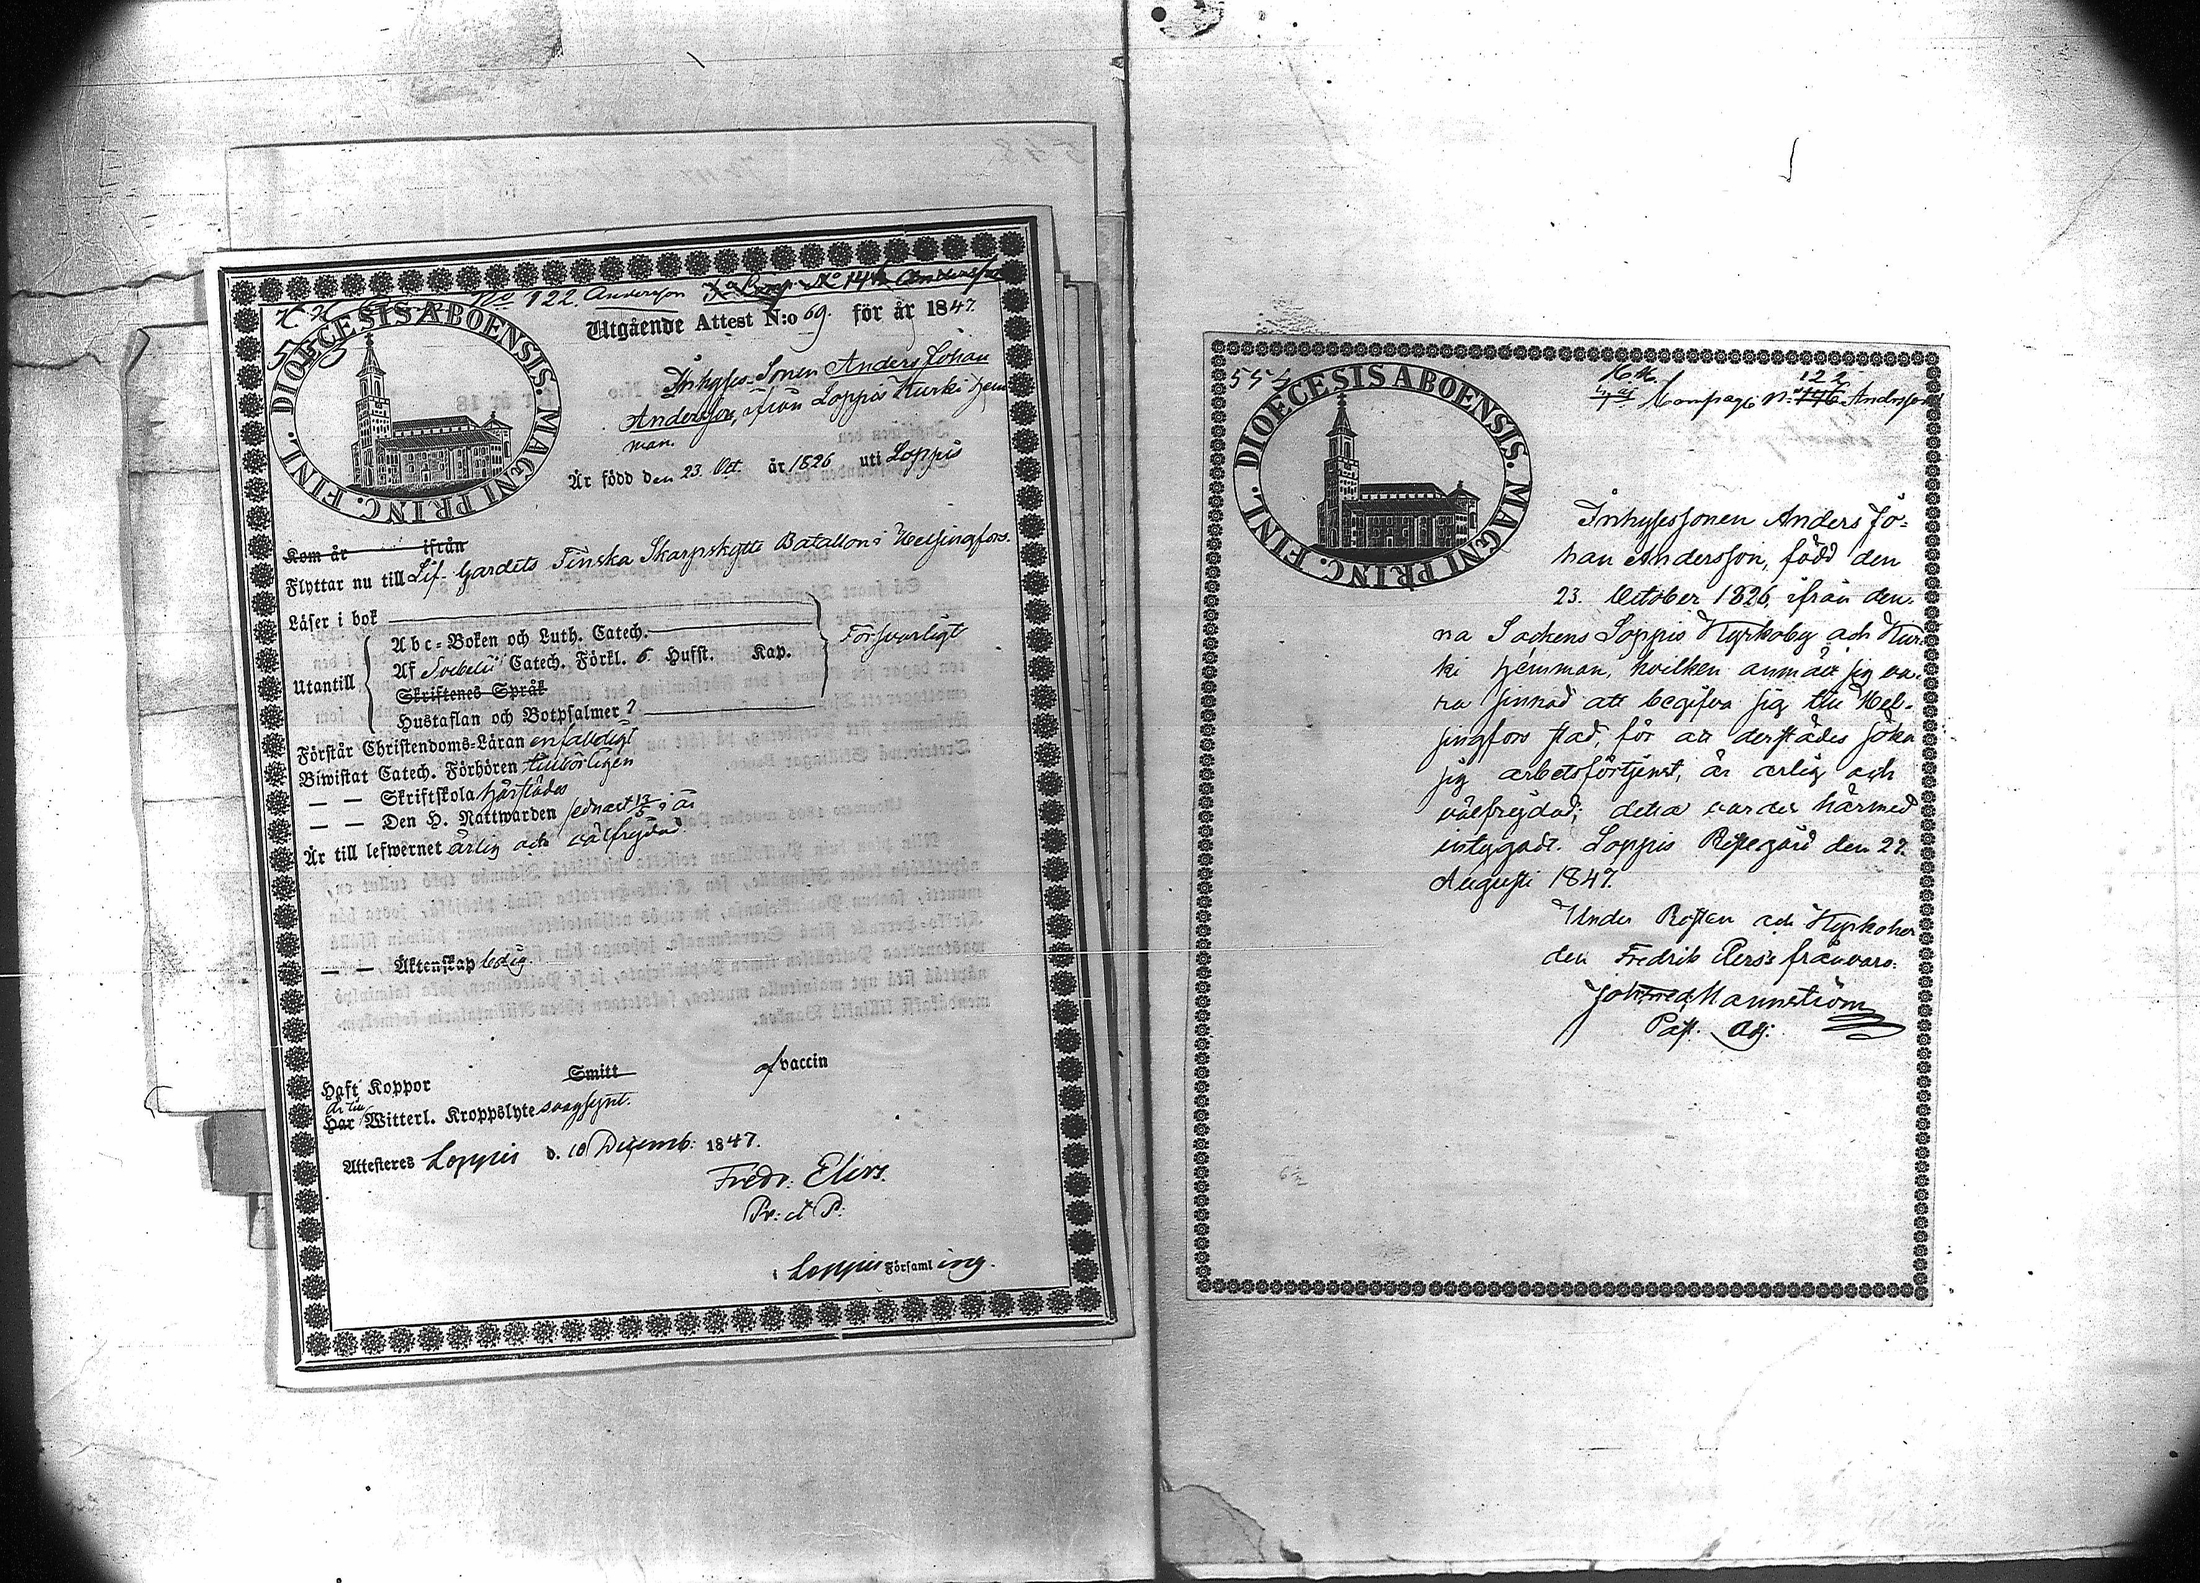 No 122. Andersson
553
DIOECESIS ABOENSIS. MAGNI PRINC. FINL.
Utgående Attest N:o 69. för år 1847.
Inhyses-Sonen Anders Johan
Andersson, ifrån Loppis Kurki hem
man.
Är född den 23. Oct. år 1826 uti Loppis
Kom år ifrån
Flyttar nu till Lif-Gardets Finska Skarpskytte Bataillon i Helsingfors.
Läser i bok
Utantill
Abc-Boken och Luth. Catech.
Af Svebelii Catech. Förkl. 6. Hufst. Kap.
Skriftenes Språk
Hustaflan och Botpsalmer 7
Försvarligt
Förstår Christendoms-Läran enfaldigt
Biwistat Catech. Förhören tillbörligen
— — Skriftskola härstädes
— — Den H. Nattwarden sednast 13/5 i år
Är till lefwernet ärlig och välfrejdad.
— — Äktenskap ledig
Haft Koppor Smitt af vaccin
är till
Har Witterl. Kroppslyte svagsynt.
Attesteres Loppis d. 18 Decemb: 1847.
Fredr: Elers.
Pr: et P:
i Loppis Församling.
553
DIOECESIS ABOENSIS. MAGNI PRINC. FINL.
122
Compagn. N: 146 Andersson
Inhysessonen Anders Jo-
han Andersson, född den
23. October 1826, ifrån den-
na Sockens Loppis Kyrkoby och Kur-
ki hemman, hvilken anmält sig va-
ra sinnad att begifva sig till Hel-
singfors stad, för att derstädes söka
sig arbetsförtjenst, är ärlig och
välfrejdad; detta varder härmed
intygadt. Loppis Prestgård den 27.
Augusti 1847.
Under Prosten och Kyrkoher
den Fredrik Elers's frånvaro:
Mannström
Past. Adj: